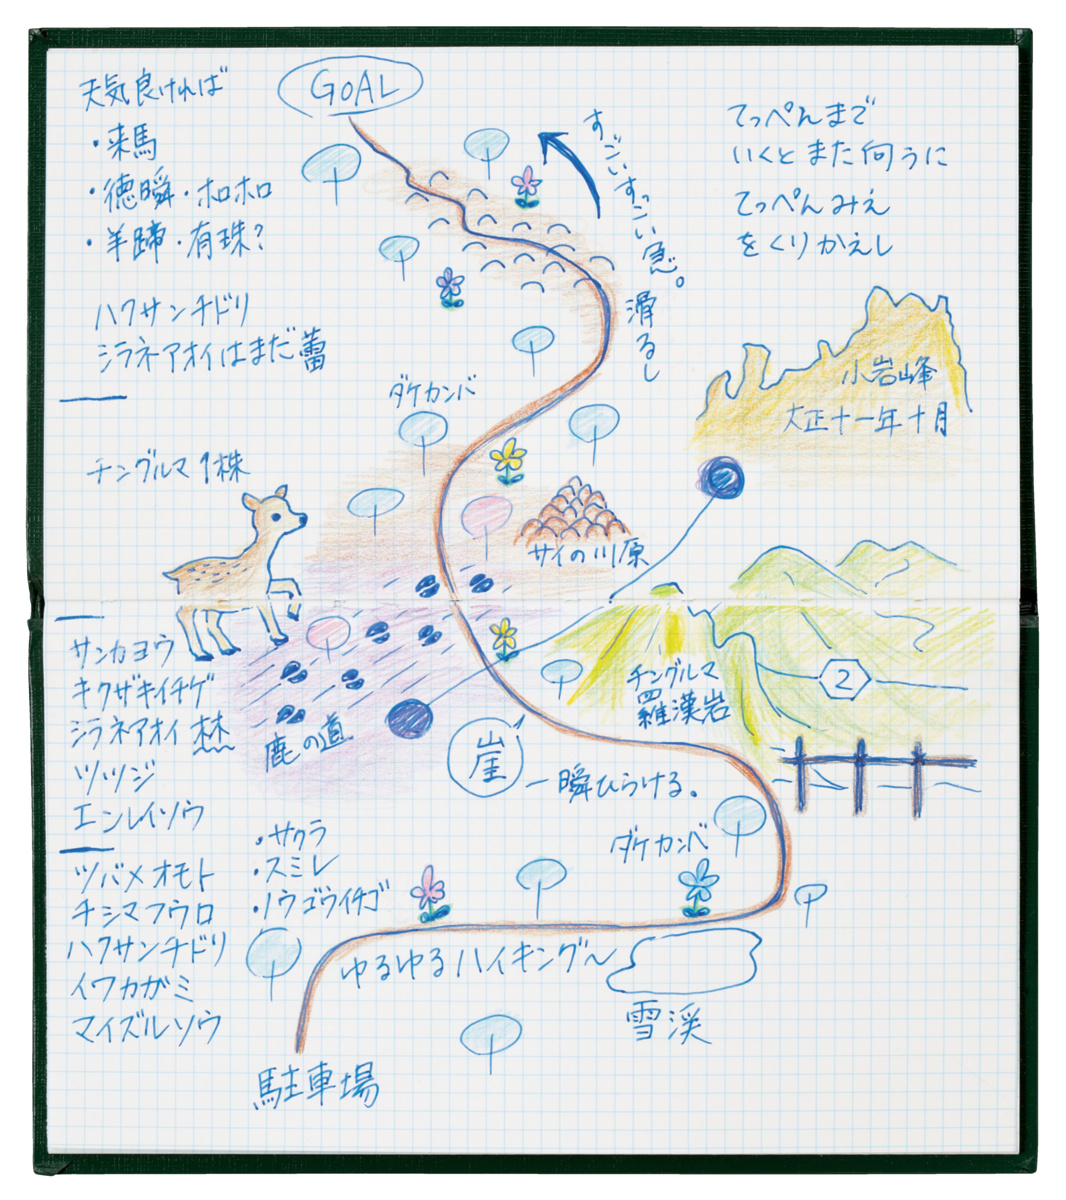 GOAL
天気良ければ
・来馬
・徳瞬・ホロホロ
・羊蹄・有珠?
ハクサンチドリ
シラネアオイはまだ蕾
チングルマ 1株
サンカヨウ
キクザキイチゲ
シラネアオイ 林
ツツジ
エンレイソウ
ツバメオモト
チシマフウロ
ハクサンチドリ
イワカガミ
マイズルソウ
・サクラ
・スミレ
・ノウゴウイチゴ
すごいすっごい急。
滑るし
てっぺんまで
いくとまた向うに
てっぺんみえ
をくりかえし
小岩峰
大正十一年十月
ダケカンバ
サイの川原
チングルマ
羅漢岩
2
鹿の道
崖
一瞬ひらける。
ダケカンバ
ゆるゆるハイキング〜
雪渓
駐車場